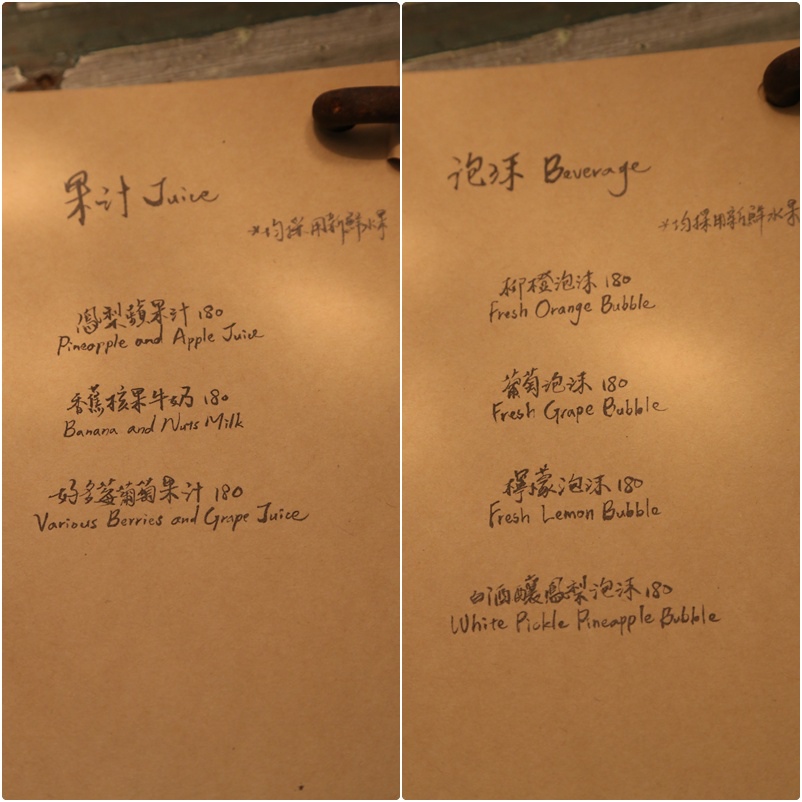 果汁 Juice
*均採用新鮮水果
鳳梨蘋果汁 180
Pineapple and Apple Juice
香蕉核果牛奶 180
Banana and Nuts Milk
好多莓葡萄果汁 180
Various Berries and Grape Juice
泡沫 Beverage
*均採用新鮮水果
柳橙泡沫 180
Fresh Orange Bubble
葡萄泡沫 180
Fresh Grape Bubble
檸檬泡沫 180
Fresh Lemon Bubble
白酒釀鳳梨泡沫 180
White Pickle Pineapple Bubble